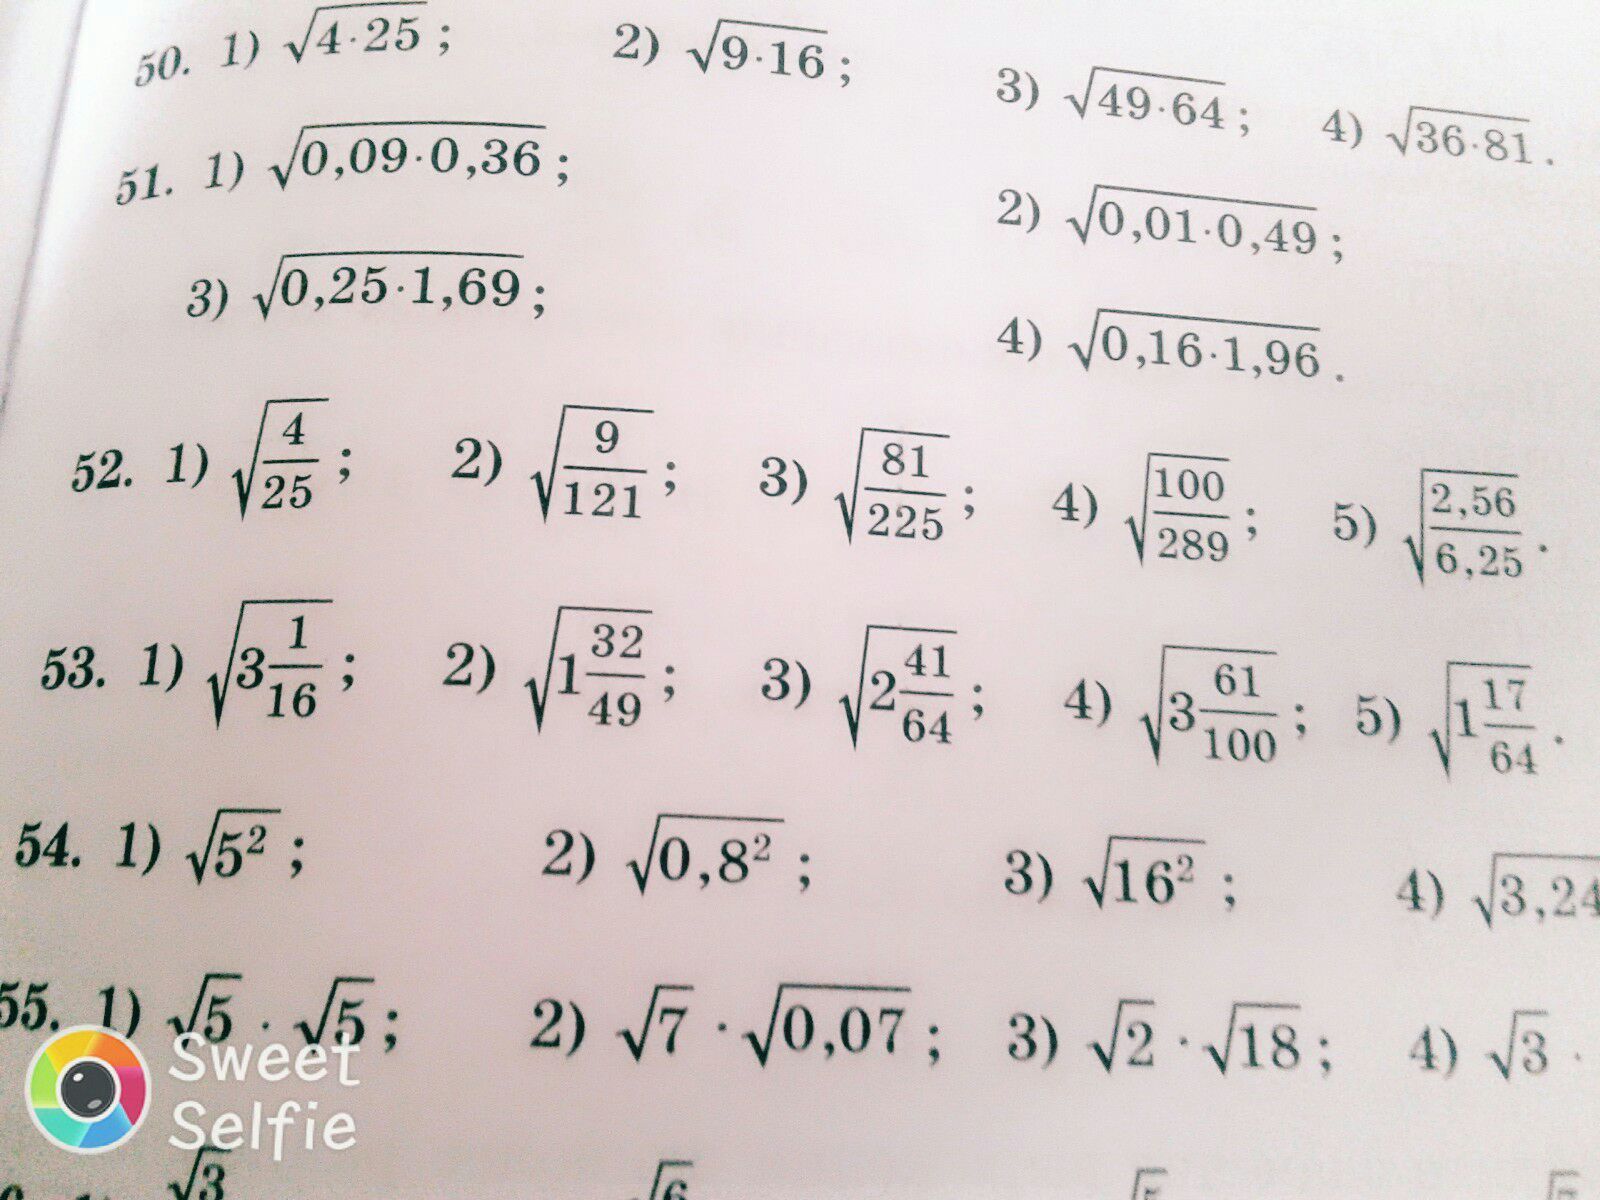 50. 1) √4·25; 2) √9·16; 3) √49·64; 4) √36·81.
51. 1) √0,09·0,36; 2) √0,01·0,49;
3) √0,25·1,69; 4) √0,16·1,96.
52. 1) √4/25; 2) √9/121; 3) √81/225; 4) √100/289; 5) √2,56/6,25.
53. 1) √3 1/16; 2) √1 32/49; 3) √2 41/64; 4) √3 61/100; 5) √1 17/64.
54. 1) √5²; 2) √0,8²; 3) √16²; 4) √3,24
55. 1) √5 · √5; 2) √7 · √0,07; 3) √2 · √18; 4) √3 ·
Sweet
Selfie
√3 √6